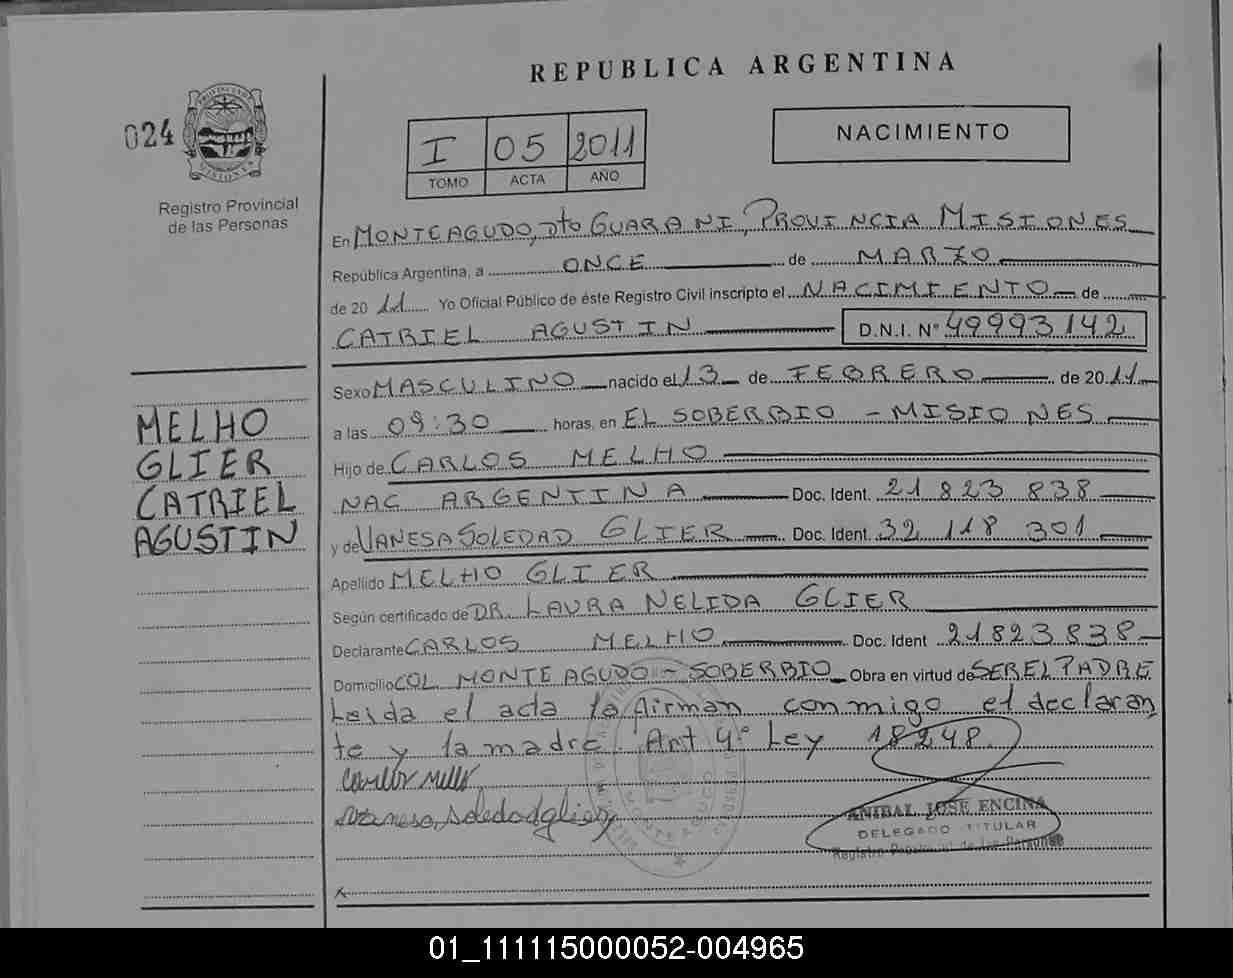 REPUBLICA ARGENTINA
024
I 05 2011
TOMO ACTA AÑO
NACIMIENTO
Registro Provincial
de las Personas
En MONTEAGUDO, Dto GUARANI, PROVINCIA MISIONES
República Argentina, a ONCE de MARZO
de 20 11 Yo Oficial Público de éste Registro Civil inscripto el NACIMIENTO de
CATRIEL AGUSTIN D.N.I. Nº 49993142
Sexo MASCULINO nacido el 13 de FEBRERO de 20 11
MELHO
GLIER
CATRIEL
AGUSTIN
a las 09:30 horas, en EL SOBERBIO - MISIONES
Hijo de CARLOS MELHO
NAC ARGENTINA Doc. Ident. 21 823 838
y de VANESA SOLEDAD GLIER Doc. Ident. 32 118 301
Apellido MELHO GLIER
Según certificado de DR. LAURA NELIDA GLIER
Declarante CARLOS MELHO Doc. Ident 21823838
Domicilio COL MONTEAGUDO - SOBERBIO Obra en virtud de SER EL PADRE
Leida el acta la firman conmigo el declaran
te y la madre. Art 4º Ley 18248.
Vanesa, Soledad glier
ANIBAL JOSE ENCINA
DELEGADO TITULAR
Registro Provincial de las Personas
01_111115000052-004965